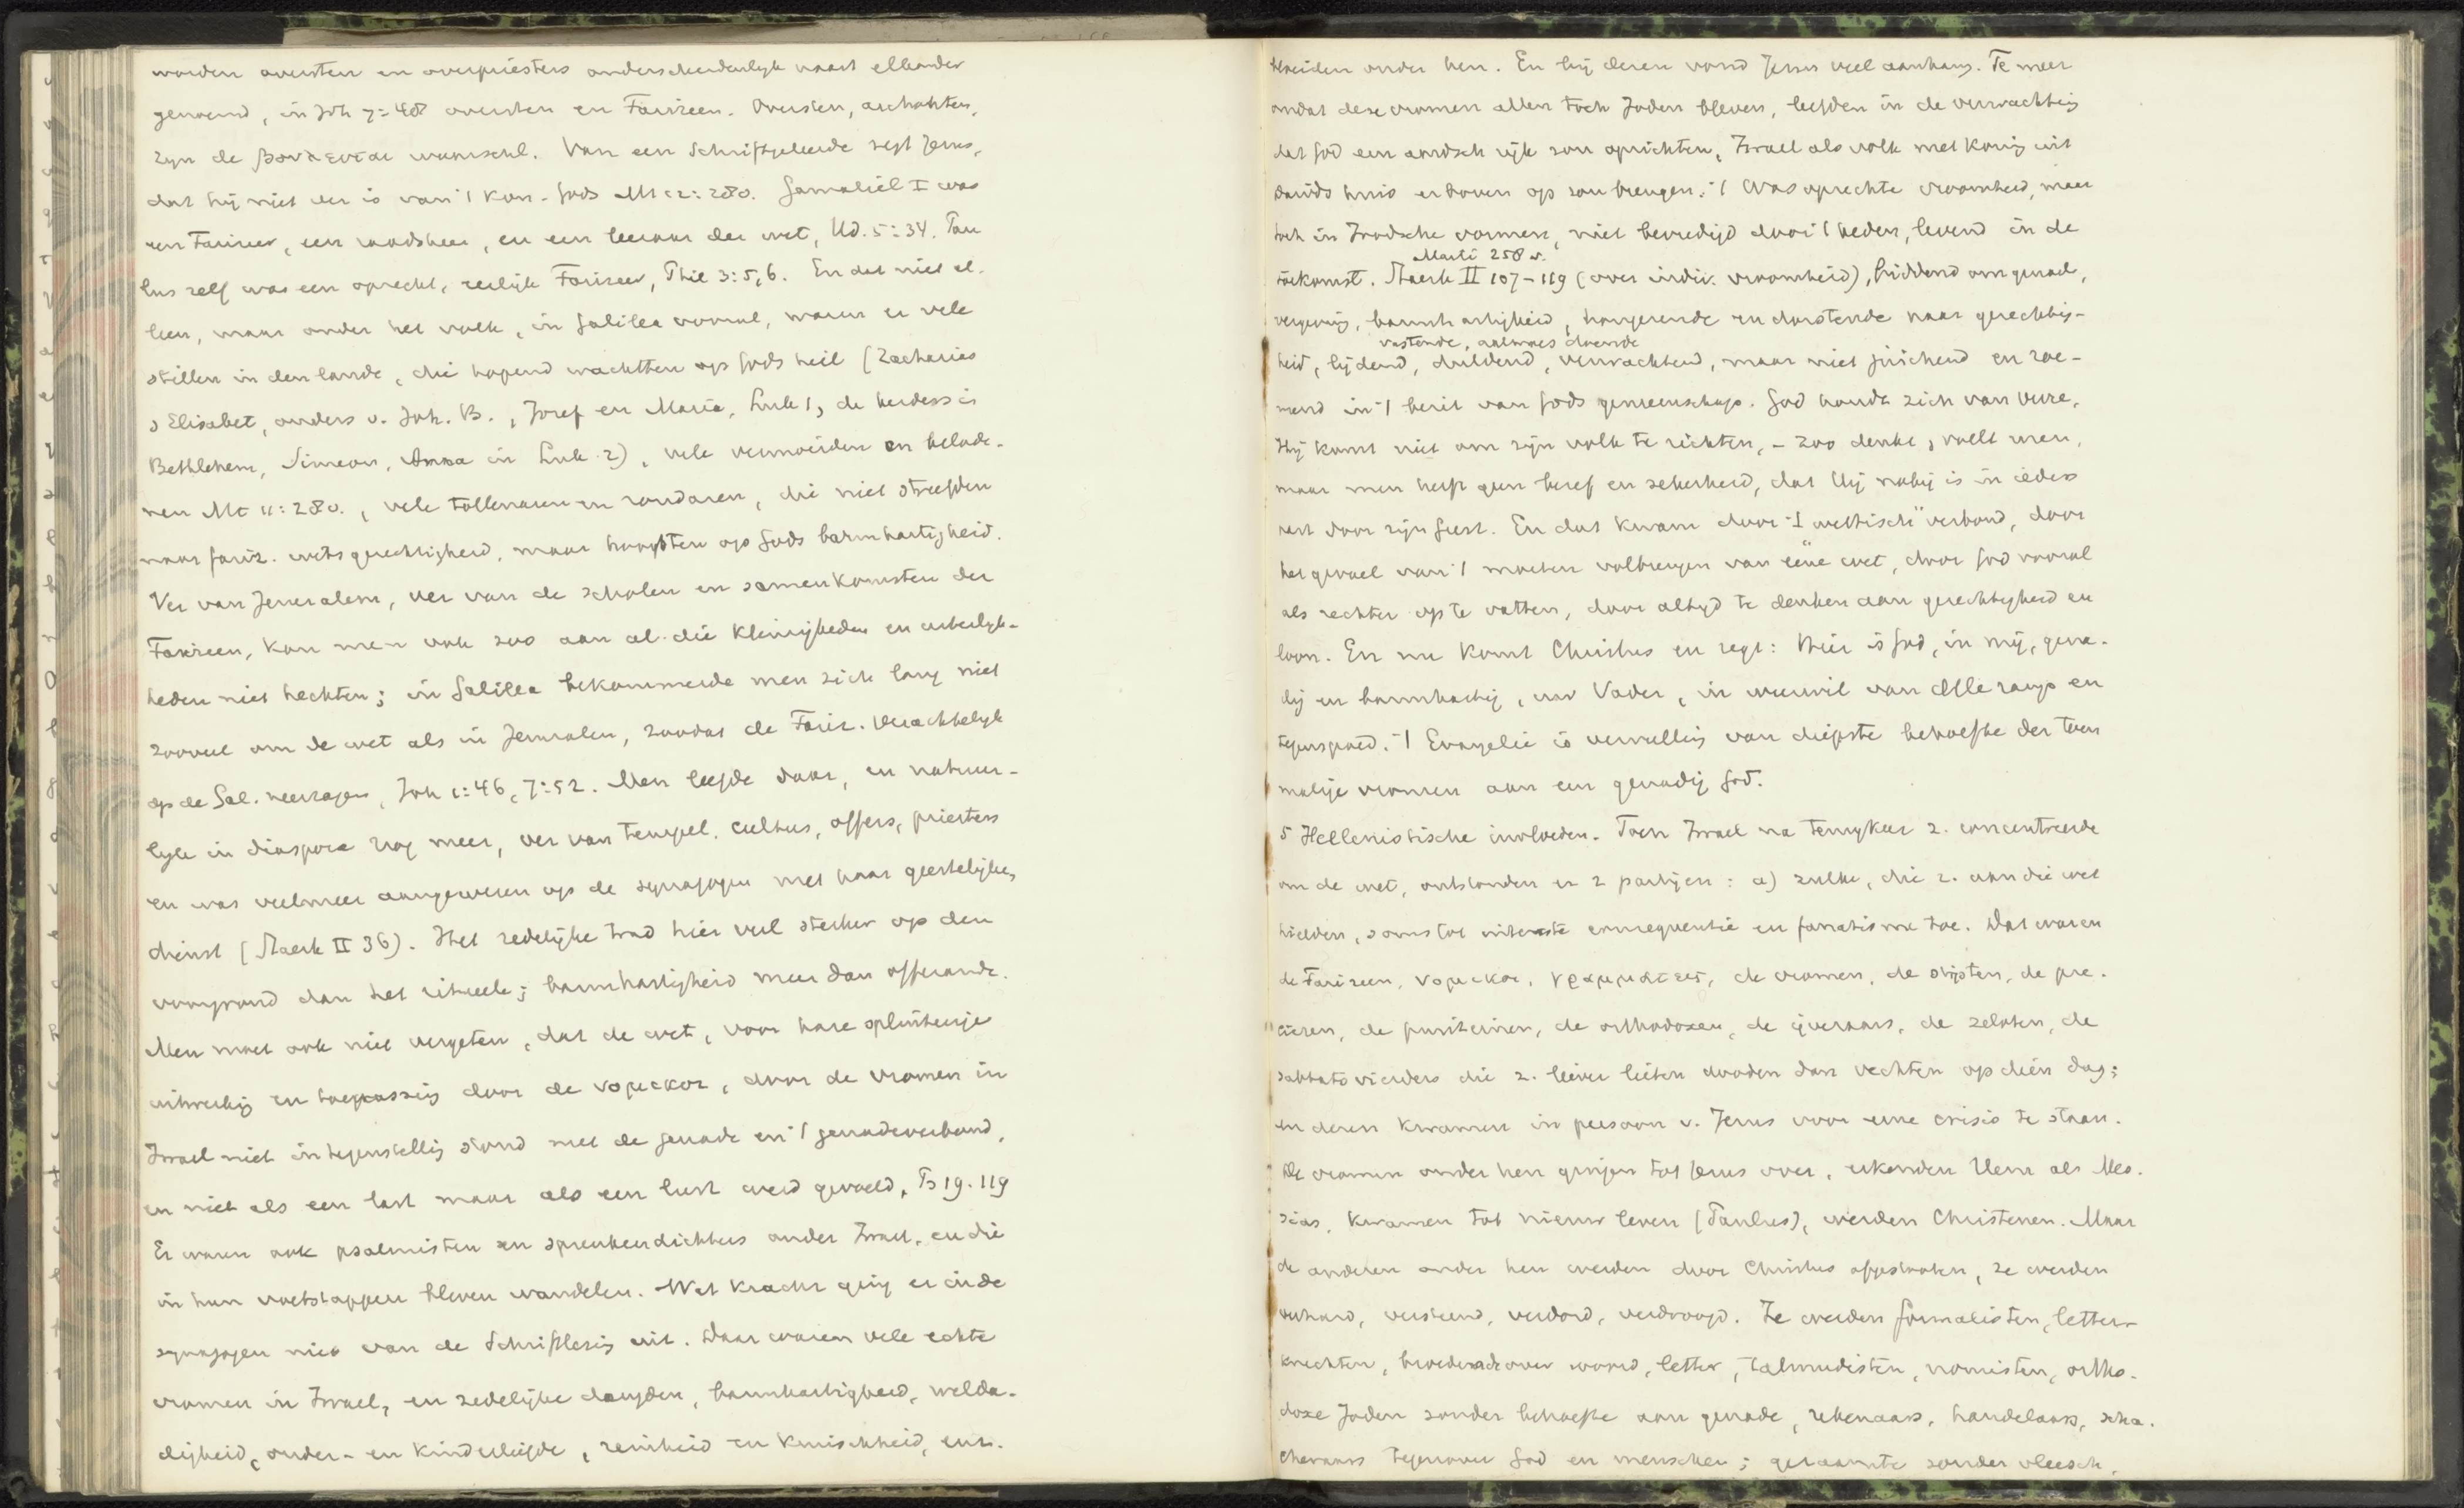 worden oversten en overpriesters onderscheidenlijk naast elkander
genoemd, in Joh 7:48 oversten en Farizeen. Oversten, archonten,
zijn de βουλευται waarschl. Van een Schriftgeleerde zegt Jezus,
dat hij niet ver is van 't Kon. Gods Mt 12:28v. Gamaliël I was
een Farizeer, een raadsheer, en een leeraar der wet, Hd. 5:34. Pau
lus zelf was een oprecht, eerlijk Farizeer, Phil 3:5,6. En dat niet al-
leen, maar onder het volk, in Galilea vooral, waren er vele
stillen in den lande, die hopend wachtten op Gods heil (Zacharias
& Elisabet, ouders v. Joh. B., Jozef en Maria, Luk 1, de herders in
Bethlehem, Simeon, Anna in Luk 2), vele vermoeiden en belade-
nen Mt 11:28v., vele tollenaren en zondaren, die niet streefden
naar fariz. wetsgerechtigheid, maar hoopten op Gods barmhartigheid.
Ver van Jeruzalem, ver van de scholen en samenkomsten der
Farizeen, kon men ook zoo aan al die kleinigheden en uiterlijk-
heden niet hechten; in Galilea bekommerde men zich lang niet
zooveel om de wet als in Jeruzalem, zoodat de Fariz. verachtelijk
op de Gal. neerzagen, Joh 1:46, 7:52. Men leefde daar, en natuur-
lijk in diaspora nog meer, ver van tempel, cultus, offers, priesters
en was veelmeer aangewezen op de synagogen met haar geestelijken
dienst (Staerk II 36). Het zedelijke trad hier veel sterker op den
voorgrond dan het ritueele; barmhartigheid meer dan offerande.
Men moet ook niet vergeten, dat de wet, voor hare splinterige
uitwerking en toepassing door de νομικοι, door de vromen in
Israel niet in tegenstelling stond met de genade en 't genadeverbond,
en niet als een last maar als een lust werd gevoeld, Ps 19. 119
Er waren ook psalmisten en spreukendichters onder Israel, en die
in hun voetstappen bleven wandelen. Wat kracht ging er in de
synagogen niet van de Schriftlezing uit. Daar waren vele echte
vromen in Israel, en zedelijke deugden, barmhartigheid, welda-
digheid, ouder- en kinderliefde, reinheid en kuischheid, enz.
bloeiden onder hen. En bij dezen vond Jezus veel aanhang. Te meer
omdat deze vromen allen toch Joden bleven, leefden in de verwachting
dat God een aardsch rijk zou oprichten, Israel als volk met koning uit
Davids huis er boven op zou brengen. 't Was oprechte vroomheid, maar
toch in Joodsche vormen, niet bevredigd door 't heden, levend in de
Marti 258 v.
toekomst. Staerk II 107-119 (over indiv. vroomheid), biddend om genade,
vergeving, barmhartigheid, hongerende en dorstende naar gerechtig-
vastende, aalmoes doende
heid, lijdend, duldend, verwachtend, maar niet juichend en roe-
mend in 't bezit van Gods gemeenschap. God houdt zich van verre,
Hij komt niet om zijn volk te richten, - zoo denkt, voelt men,
maar men heeft geen besef en zekerheid, dat Hij nabij is in ieders
hart door zijn Geest. En dat kwam door 't „wettisch" verbond, door
het gevoel van 't moeten volbrengen van eene wet, door God vooral
als rechter op te vatten, door altijd te denken aan gerechtigheid en
loon. En nu komt Christus en zegt: Hier is God, in mij, gena-
dig en barmhartig, uw Vader, in weerwil van alle ramp en
tegenspoed. 't Evangelie is vervulling van diepste behoefte der toen
malige vromen aan een genadig God.
5 Hellenistische invloeden. Toen Israel na terugkeer z. concentreerde
om de wet, ontstonden er 2 partijen: a) zulke, die z. aan die wet
hielden, soms tot uiterste consequentie en fanatisme toe. Dat waren
de Farizeen, νομικοι, γραμματεις, de vromen, de stipten, de pre-
ciezen, de puriteinen, de orthodoxen, de ijveraars, de zeloten, de
sabbatsvierders die z. liever lieten dooden dan vechten op dien dag;
en dezen kwamen in persoon v. Jezus voor eene crisis te staan.
De vromen onder hen gingen tot Jezus over, erkenden Hem als Mes-
sias, kwamen tot nieuw leven (Paulus), werden Christenen. Maar
de anderen onder hen werden door Christus afgestooten, ze werden
verhard, versteend, verdord, verdroogd. Ze werden formalisten, letter-
knechten, woord, letter, talmudisten, nomisten, ortho-
doxe Joden zonder behoefte aan genade, rekenaars, handelaars, scha-
cheraars tegenover God en menschen; geraamte zonder vleesch,